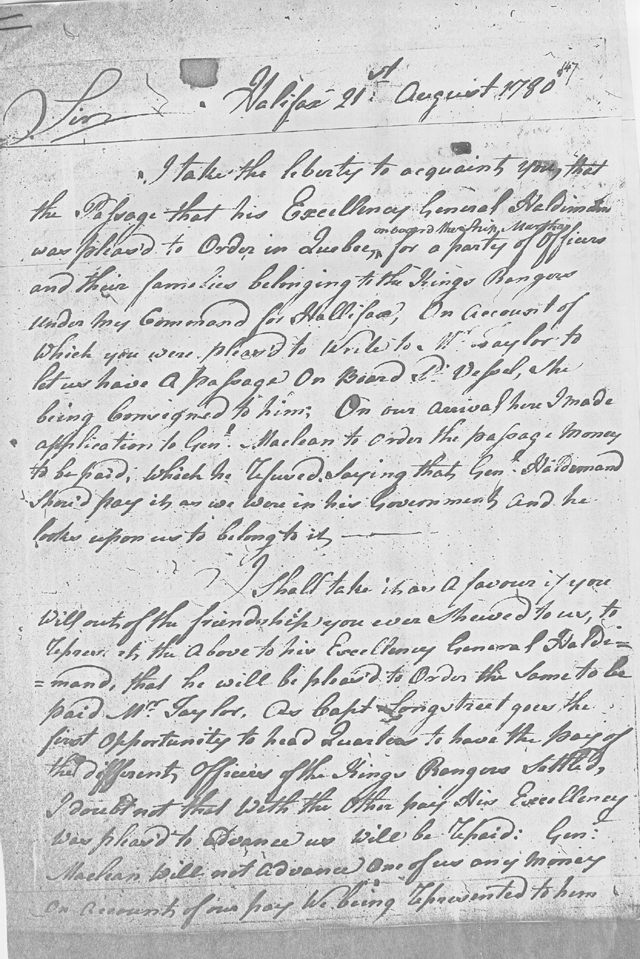 Halifax 21st August 1780
Sir
I take the liberty to acquaint you, that
the Passage that his Excellency General Haldiman
on board the Ship
was pleas'd to Order in Quebec, for a party of Officers
and their families belonging to the Kings Rangers
under my Command for Hallifax, On Account of
Which you were pleas'd to Write to Mr Taylor to
let us have A passage On Board Sd Vessel, She
being Consigned to him; On our arrival here I made
application to Genl Maclean to Order the passage Money
to be paid, which he refused Saying that Genl Haldemand
Shou'd pay it, as we were in his Government, and he
looks upon us to belong to it,
I Shall take it as A favour if you
Will out of the friendship you ever shewed to us, to
represent the Above to his Excellency General Halde=
=mand, that he will be pleas'd to Order the Same to be
paid Mr Taylor. As Capt Longstreet goes the
first Opportunity to head Quarters to have the pay of
the different Officers of the Kings Rangers Settled,
I doubt not that With the Other pay His Excellency
was pleasd to advance us will be repaid: Genl
Maclean Will not Advance One of us any Money
On Account of our pay We being represented to him